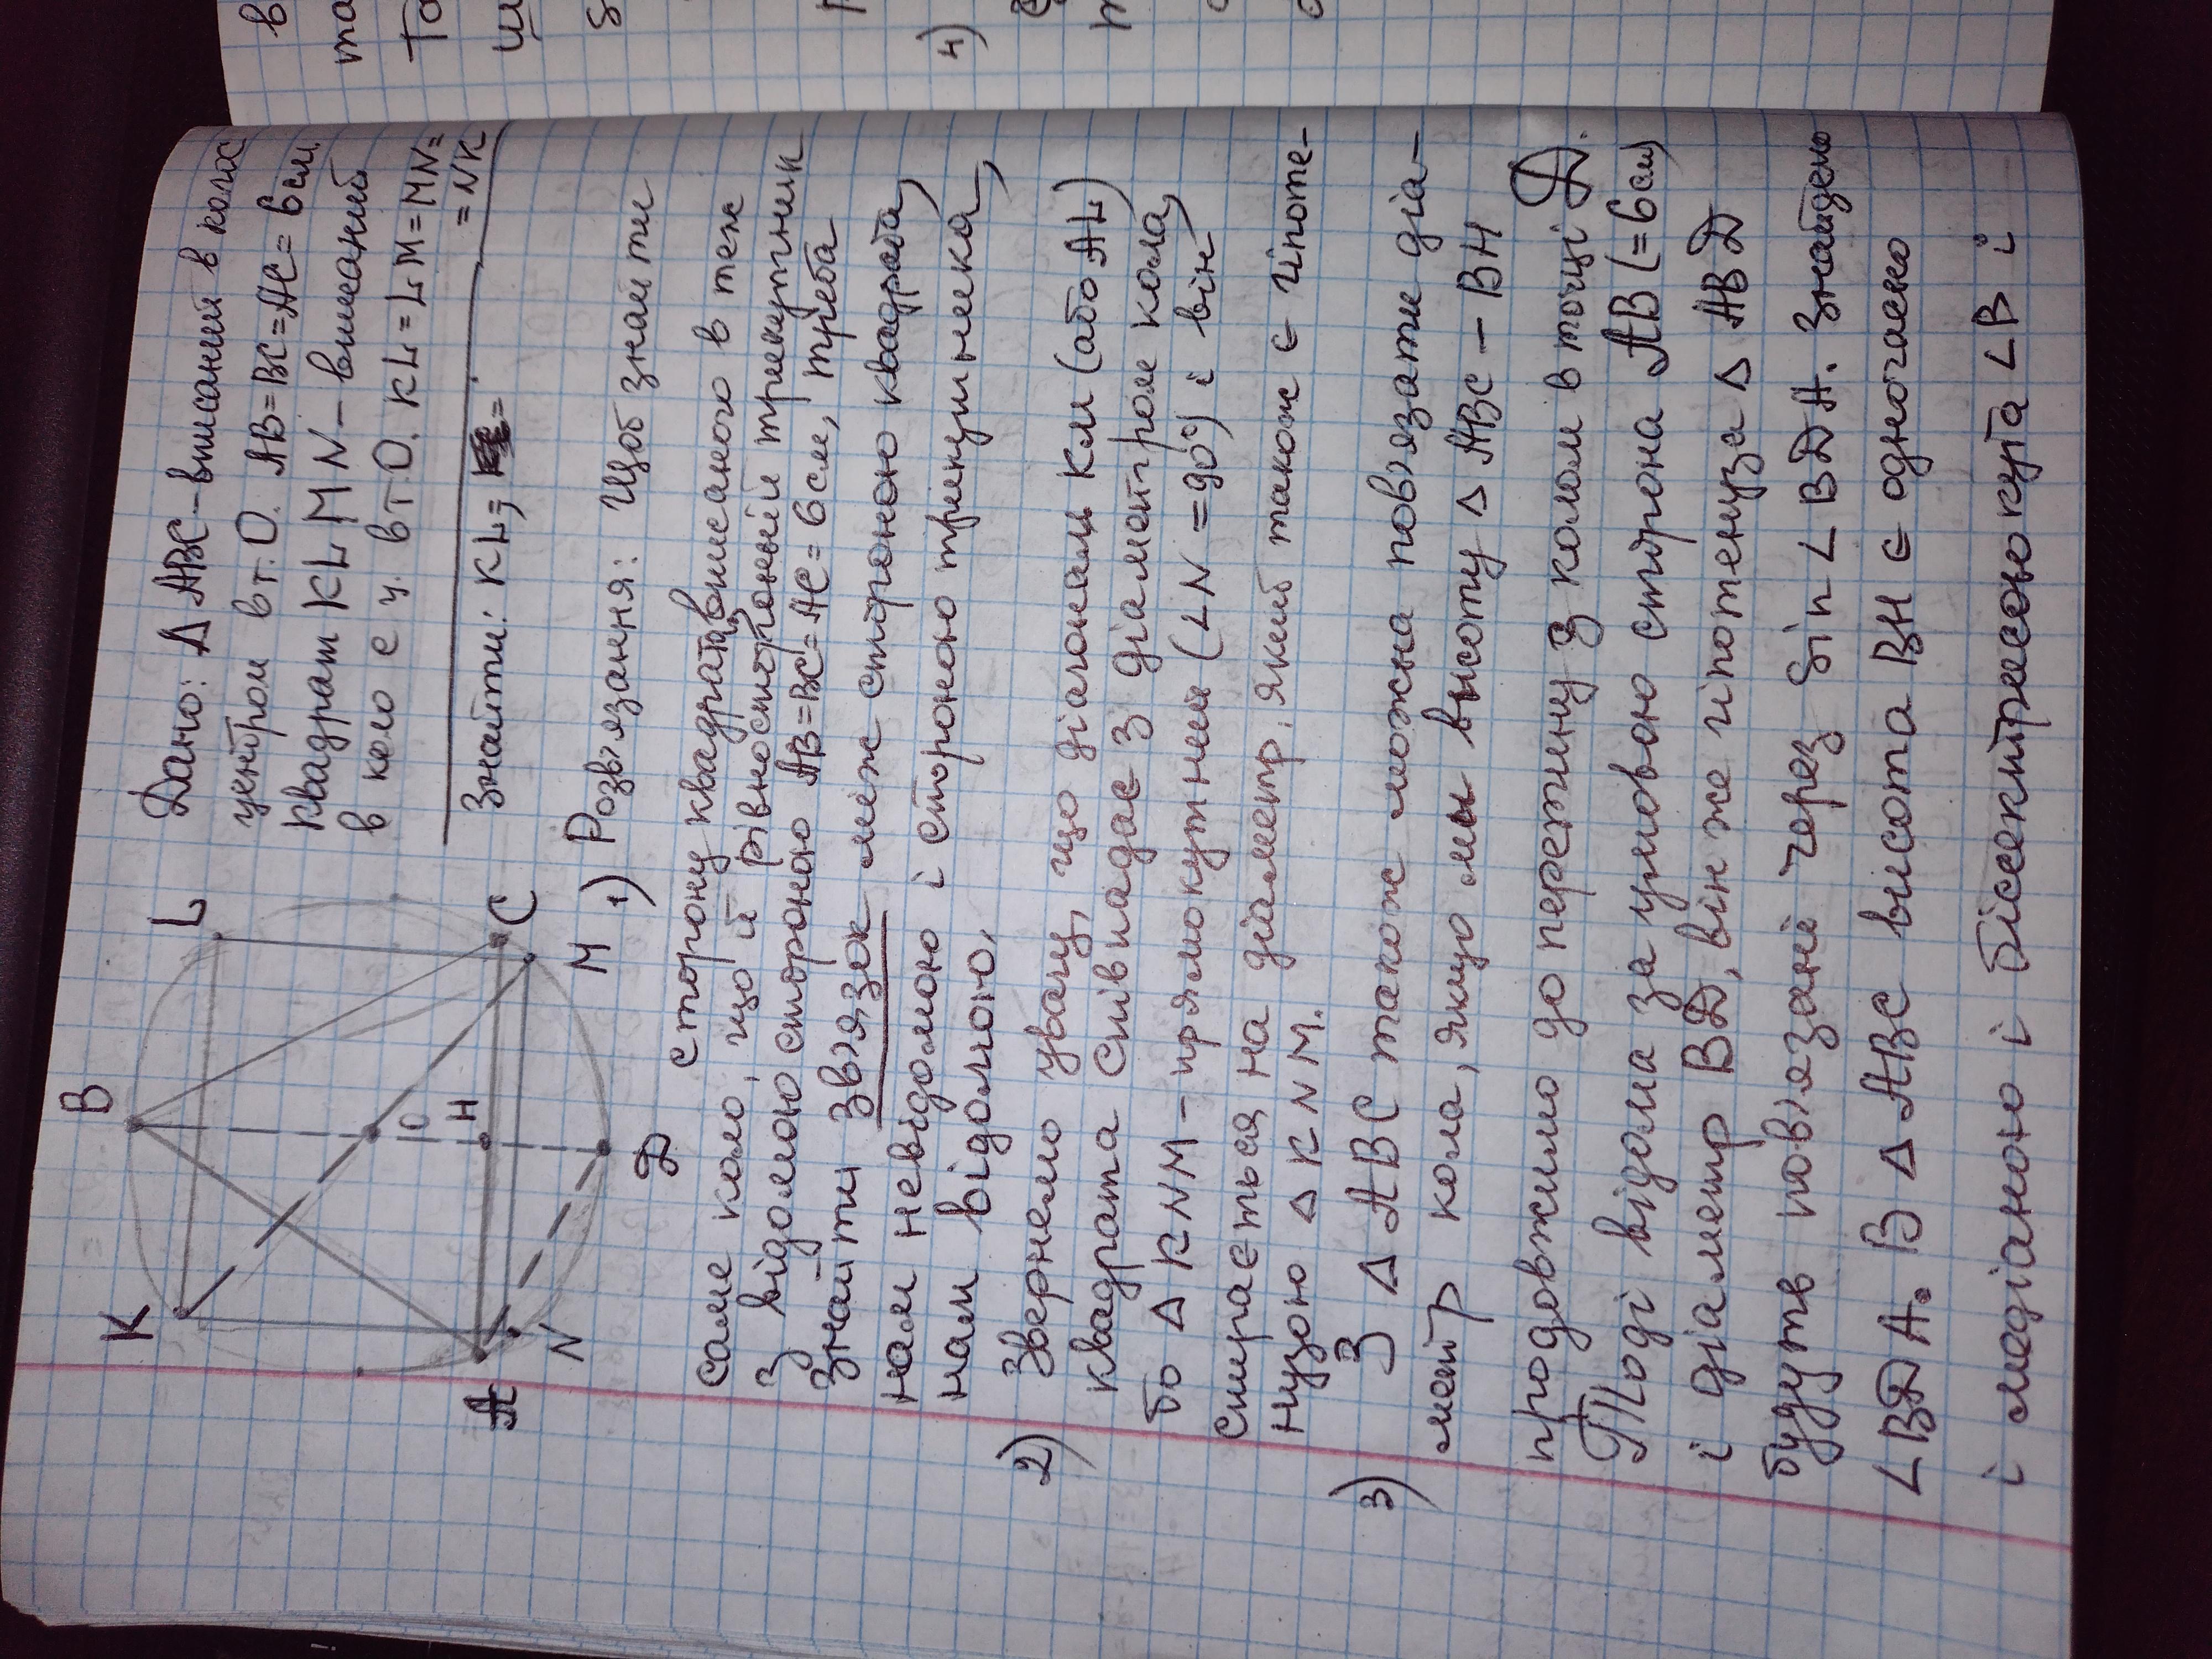 Дано: Δ ABC – вписаний в коло з
центром в т. О. AB=BC=AC= 6 см.
Квадрат KLMN – вписаний
в коло с ц. в т. О. KL=LM=MN=
=NK
Знайти: KL-?
K
B
L
O
H
A
C
N
M
Д
1) Розв'язання: Щоб знайти
сторону квадрата, вписаного в теж
саме коло, що й рівносторонній трикутник
З відомою стороною AB=BC=AC= 6 см, треба
Знайти зв'язок між стороною квадрата,
нам невідомою і стороною трикутника,
нам відомою.
2) Звернемо увагу, що діагональ КМ (або AL)
квадрата співпадає з діаметром кола,
бо Δ KNM – прямокутний (∠N = 90°) і він
спирається на діаметр, який також є гіпоте-
нузою Δ KNM.
3) З Δ ABC також можна пов'язати діа-
метр кола, якщо мы высоту Δ ABC – BH
продовжимо до перетину з колом в точці Д.
Тоді відома за умовою сторона AB (= 6 см)
і діаметр BД, він же гіпотенуза Δ ABД
будуть пов'язані через sin ∠ BДA. Знайдемо
∠BДA. В Δ ABC висота BH є одночасно
і медіаною і бісектрисою кута ∠B і
4)
в
та
То